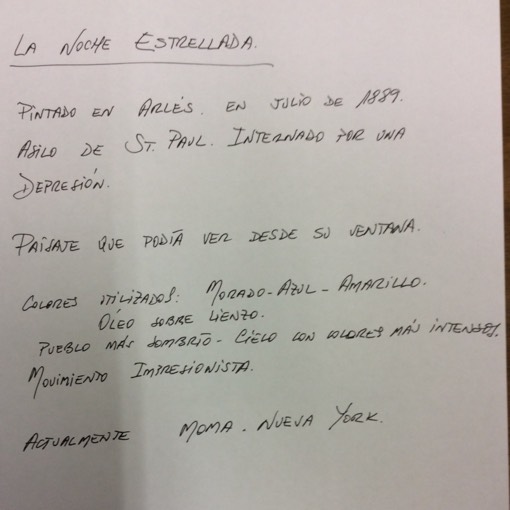 LA NOCHE ESTRELLADA.
PINTADO EN ARLÉS. EN JULIO DE 1889.
ASILO DE ST. PAUL. INTERNADO POR UNA
DEPRESIÓN.
PAISAJE QUE PODÍA VER DESDE SU VENTANA.
COLORES UTILIZADOS: MORADO-AZUL-AMARILLO.
ÓLEO SOBRE LIENZO.
PUEBLO MÁS SOMBRÍO - CIELO CON COLORES MÁS INTENSOS.
MOVIMIENTO IMPRESIONISTA.
ACTUALMENTE MOMA. NUEVA YORK.